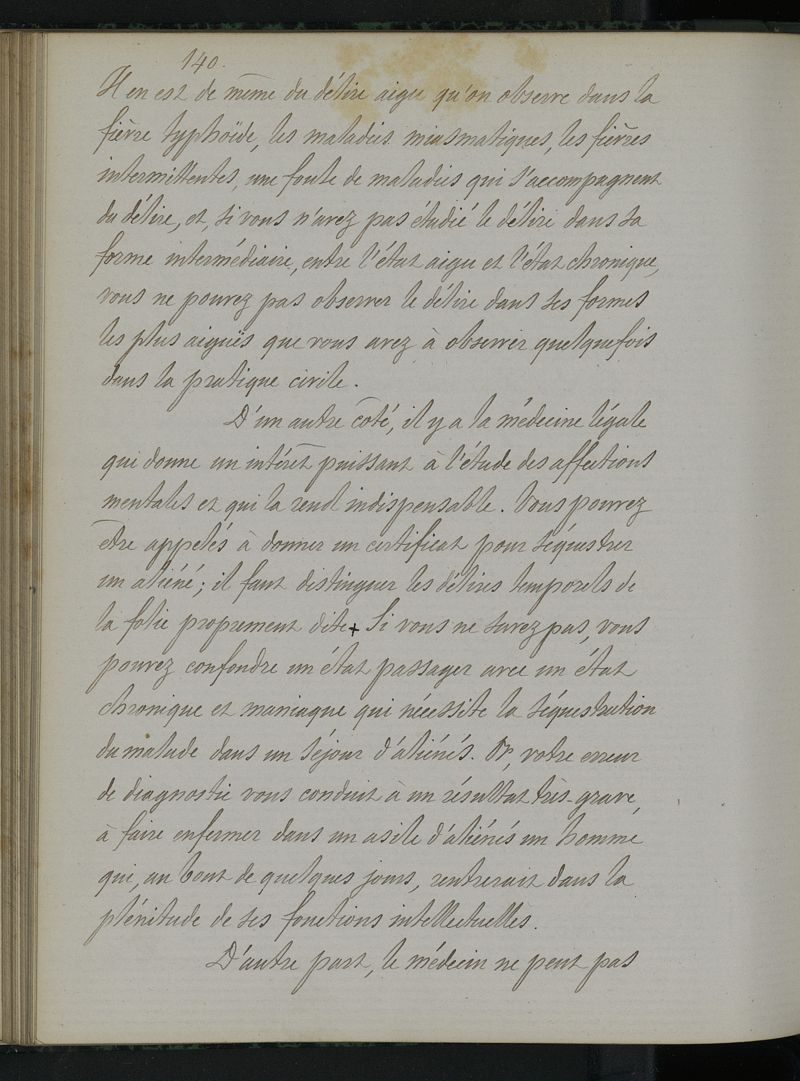 140.
Il en est de même du délire aigu qu'on observe dans la
fièvre typhoïde, les maladies miasmatiques, les fièvres
intermittentes, une foule de maladies qui s'accompagnent
du délire, et, si vous n'avez pas étudié le délire dans sa
forme intermédiaire, entre l'état aigu et l'état chronique,
vous ne pouvez pas observer le délire dans ses formes
les plus aiguës que vous avez à observer quelquefois
dans la pratique civile.
D'un autre côté, il y a la médecine légale
qui donne un intérêt puissant à l'étude des affections
mentales et qui la rend indispensable. Vous pouvez
être appelés à donner un certificat pour séquestrer
un aliéné ; il faut distinguer les délires temporels de
la folie proprement dite + Si vous ne savez pas, vous
pouvez confondre un état passager avec un état
chronique et maniaque qui nécessite la séquestration
du malade dans un séjour d'aliénés. Or, votre erreur
de diagnostic vous conduit à un résultat très-grave,
à faire enfermer dans un asile d'aliénés un homme
qui, au bout de quelques jours, rentrerait dans la
plénitude de ses fonctions intellectuelles.
D'autre part, le médecin ne peut pas